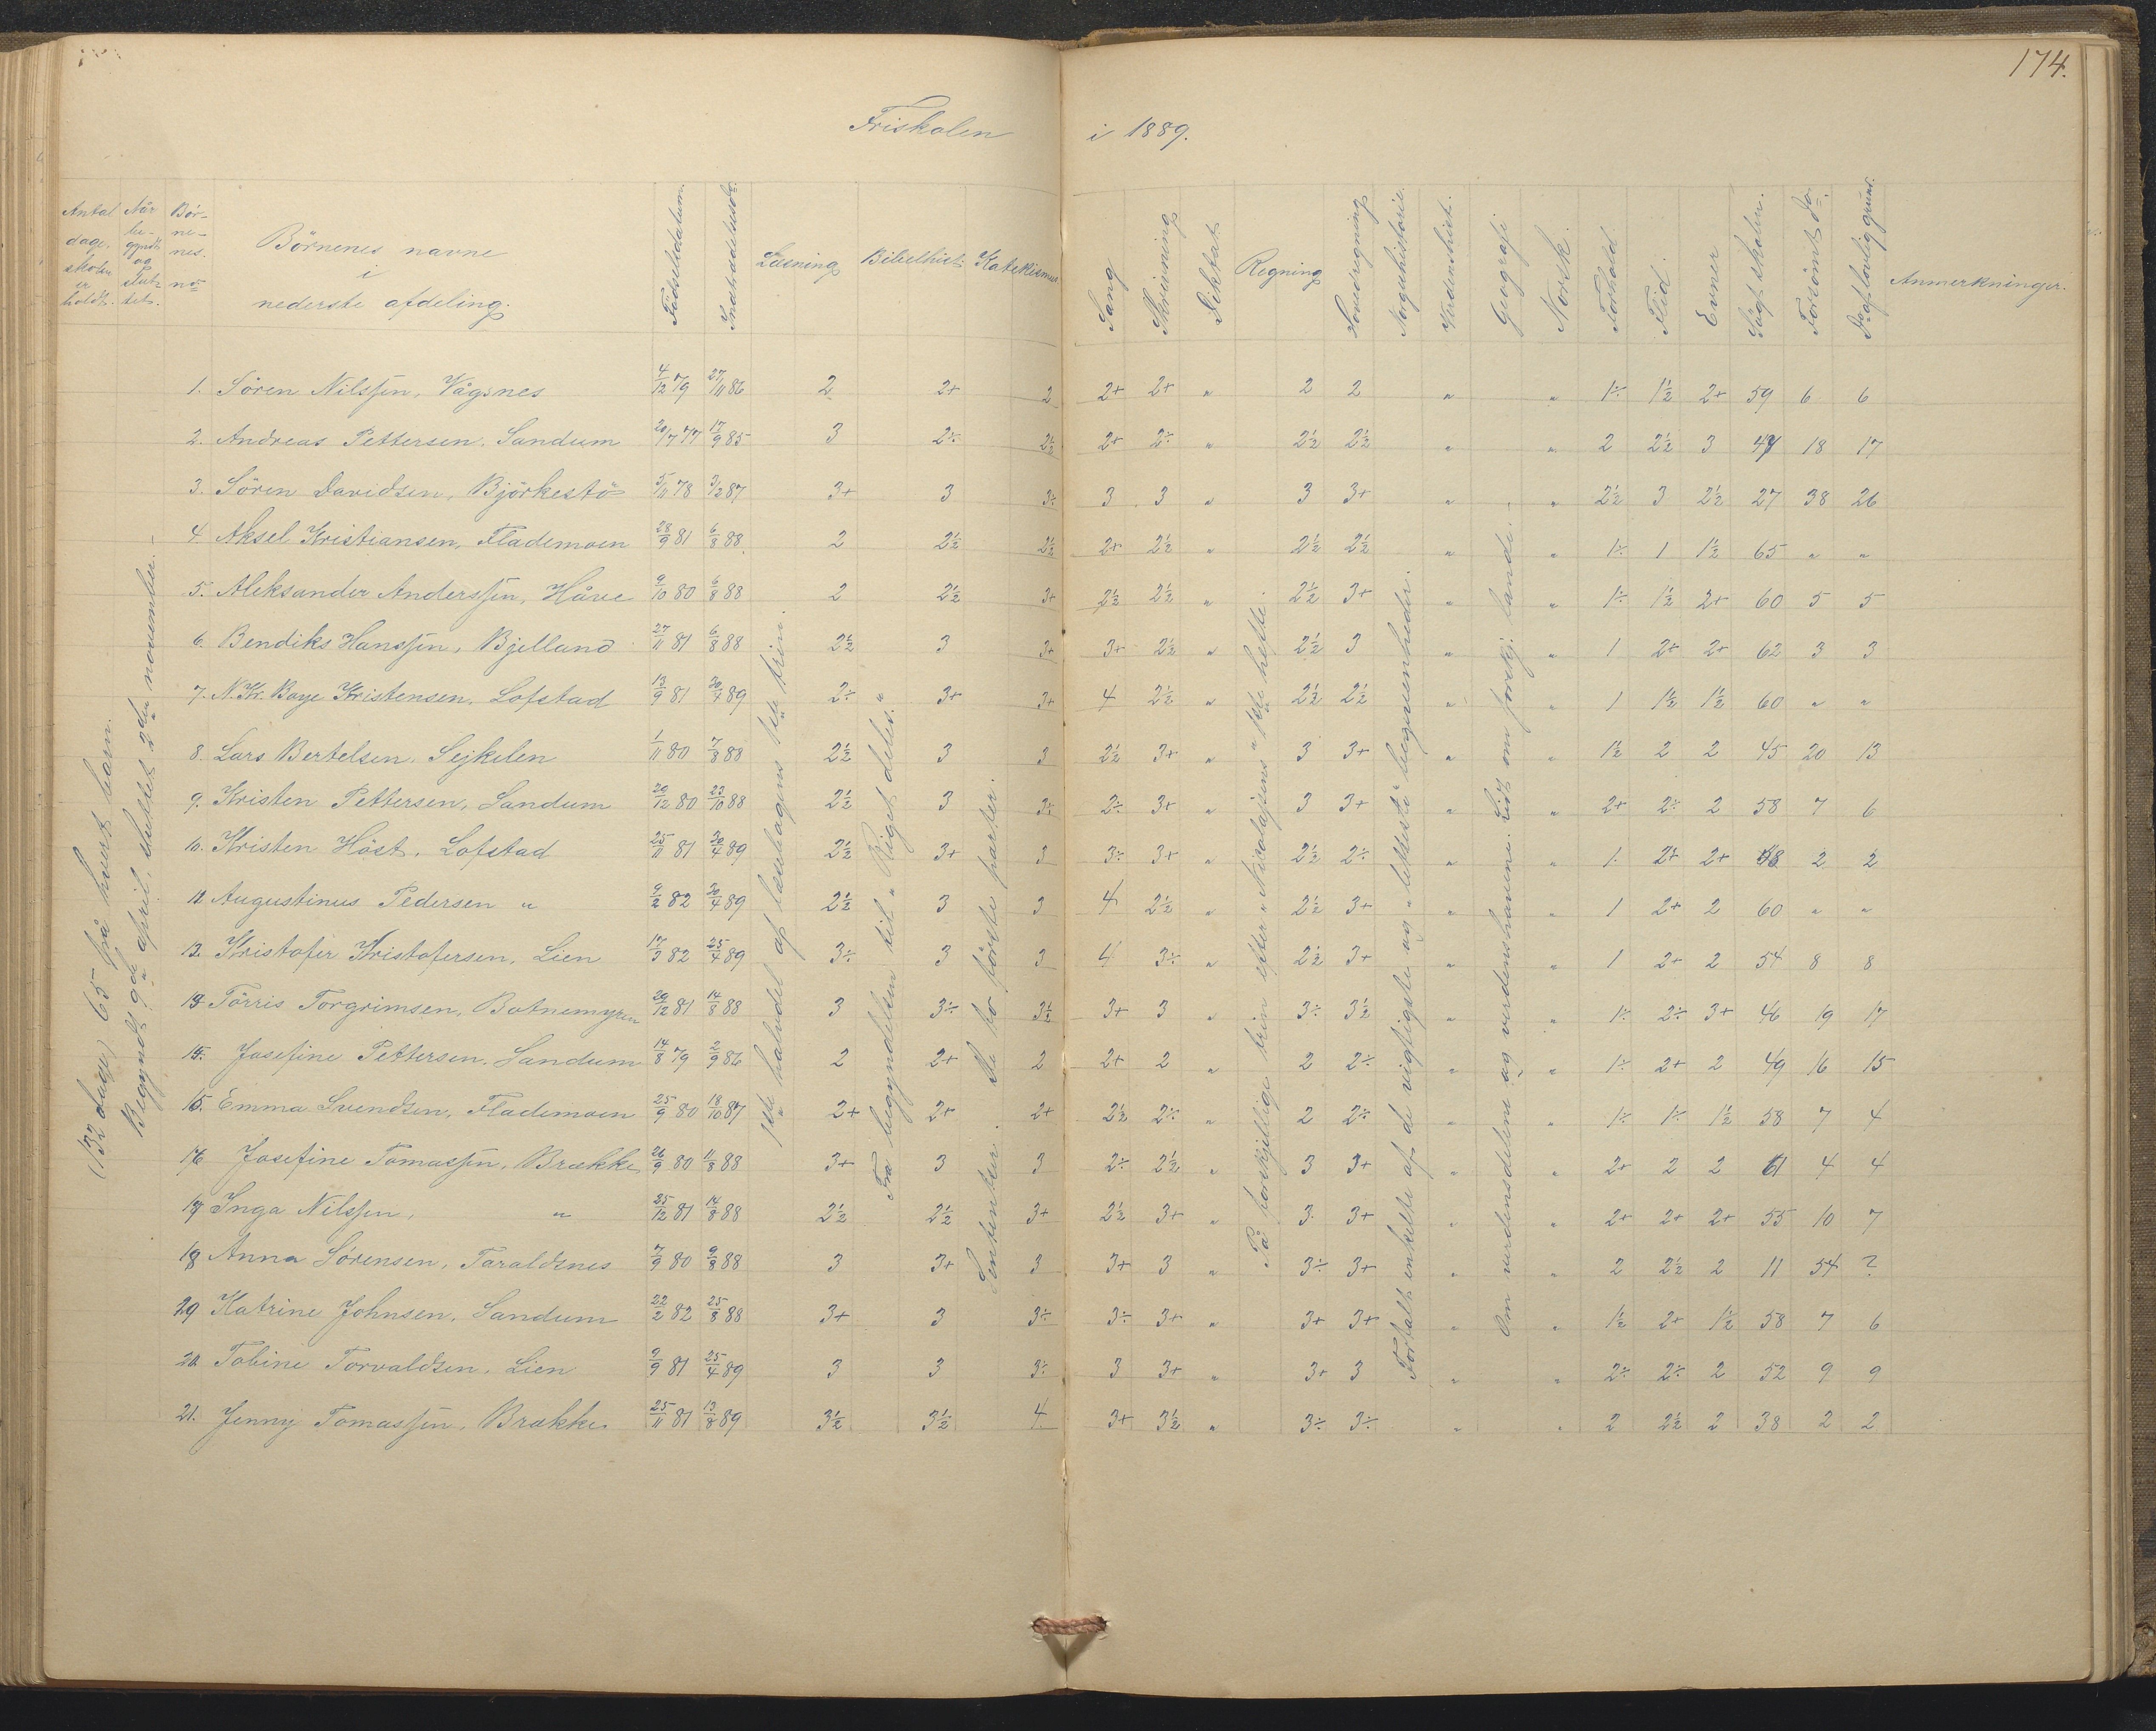 174.
Friskolen i 1889.
Antal dage, skolen er holdt. | Når begyndt og sluttet. | Börnenes no | Börnenes navne i nederste afdeling. | Födselsdatum. | Læsning | Bibelhist. | Katekismus | Sang | Skrivning | Diktat | Regning | Hovedregning | Norgeshistorie. | Verdenshist. | Geografi | Norsk. | Forhold. | Flid. | Evner | Sögt skolen. | Forsömt da. | Do af lovlig grund. | Anmerkninger.
(132 dage) 65 på hvert barn.
Begyndt 9de april, sluttet 2den november. –
1ste halvdel af læsebogens 1ste trin.
Fra begyndelsen til „Riget deles."
Sentenser. De to förste parter.
På forskjellige trin efter „Nicolajsens" 1ste hefte.
Fortalt enkelte af de vigtigste og „letteste" begivenheder.
Om verdensdelene og verdenshavene. Lidt om forskj. lande. –
1. Sören Nilssen, Vågsnes 4/12 79 27/11 86 2 2+ 2 2+ 2+ „ 2 2 „ „ 1÷ 1½ 2+ 59 6 6
2. Andreas Pettersen, Sandum 20/7 77 17/9 85 3 2÷ 2½ 2+ 2÷ „ 2½ 2½ „ „ 2 2½ 3 47 18 17
3. Sören Davidsen, Björkestö 5/11 78 3/2 87 3+ 3 3÷ 3 3 „ 3 3+ „ „ 2½ 3 2½ 27 38 26
4. Aksel Kristiansen, Flademoen 28/9 81 6/8 88 2 2½ 2½ 2+ 2½ „ 2½ 2½ „ „ 1÷ 1 1½ 65 „ „
5. Aleksander Anderssen, Håve 9/10 80 6/8 88 2 2½ 3+ 2½ 2½ „ 2½ 3+ „ „ 1÷ 1½ 2+ 60 5 5
6. Bendiks Hanssen, Bjelland 27/11 81 6/8 88 2½ 3 3+ 3+ 2½ „ 2½ 3 „ „ 1 2+ 2+ 62 3 3
7. N. Kr. Boye Kristensen, Lofstad 13/9 81 30/4 89 2÷ 3+ 3+ 4 2½ „ 2½ 2½ „ „ 1 1½ 1½ 60 „ „
8. Lars Bertelsen, Sejkelen 1/11 80 7/8 88 2½ 3 3 2½ 3+ „ 3 3+ „ „ 1½ 2 2 45 20 13
9. Kristen Pettersen, Sandum 20/12 80 23/10 88 2½ 3 3÷ 2÷ 3+ „ 3 3+ „ „ 2+ 2÷ 2 58 7 6
10. Kristen Höst, Lofstad 25/11 81 30/4 89 2½ 3+ 3 3÷ 3+ „ 2½ 2÷ „ „ 1 2+ 2+ 48 2 2
11. Augustinus Pedersen „ 9/2 82 30/4 89 2½ 3 3 4 2½ „ 2½ 3+ „ „ 1 2+ 2 60 „ „
Kristofer Kristofersen, Lien 25/4 89 3÷ 3 3 4 3÷ „ 2½ 3+ „ „ 1 2+ 2 54 8 8
Törris Torgrimsen, Botnemyren 20/12 81 14/8 88 3 3÷ 3½ 3+ 3 „ 3÷ 3½ „ „ 1÷ 2÷ 3+ 46 19 17
Josefine Pettersen, Sandum 14/8 79 2/9 86 2 2+ 2 2+ 2 „ 2 2÷ „ „ 1÷ 2+ 2 49 16 15
15. Emma Svendsen, Flademoen 25/9 80 18/10 87 2+ 2+ 2+ 2½ 2÷ „ 2 2÷ „ „ 1÷ 1÷ 1½ 58 7 4
16 Josefine Tomassen, Brække 26/9 80 11/8 88 3+ 3 3 2÷ 2½ „ 3 3+ „ „ 2+ 2 2 61 4 4
17 Inga Nilssen, „ 25/12 81 14/8 88 2½ 2½ 3+ 2½ 3+ „ 3 3+ „ „ 2+ 2+ 2+ 55 10 7
18 Anna Sörensen, Taraldsnes 7/9 80 9/8 88 3 3+ 3 3+ 3 „ 3÷ 3+ „ „ 2 2½ 2 11 54 ?
19 Katrine Johnsen, Sandum 22/2 82 25/8 88 3+ 3 3÷ 3÷ 3+ „ 3+ 3+ „ „ 1½ 2+ 1½ 58 7 6
20 Tobine Torvaldsen, Lien 9/9 81 25/4 89 3 3 3÷ 3 3+ „ 3+ 3 „ „ 2÷ 2÷ 2 52 9 9
21. Jenny Tomassen, Brække 25/11 81 13/8 89 3½ 3½ 4 3+ 3½ „ 3÷ 3÷ „ „ 2 2½ 2 38 2 2